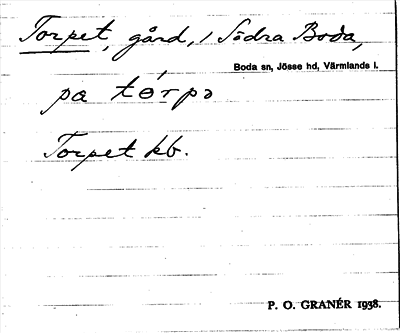 Torpet, gård, i Södra Boda,
Boda sn, Jösse hd, Värmlands l.
pa tórpə
Torpet kb.
P. O. GRANÉR 1938.